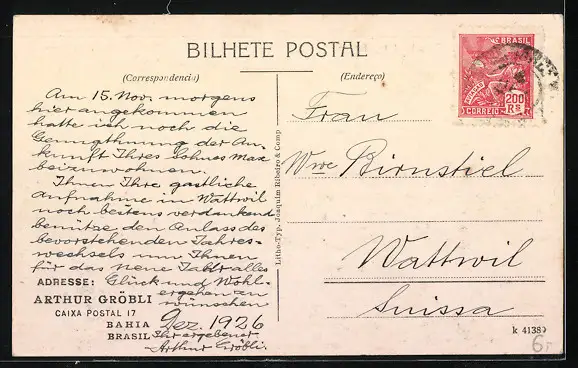 BILHETE POSTAL
(Correspondencia)
(Endereço)
Am 15. Nov. morgens
hier angekommen
hatte ich noch die
Genugthuung der An-
kunft Ihres Sohnes Max
beizuwohnen.
Ihnen Ihre gastliche
Aufnahme in Wattwil
noch bestens verdankend
benütze den Anlass des
bevorstehenden Jahres-
wechsels um Ihnen
für das neue Jahr alles
Glück und Wohl-
ergehen zu
wünschen
Dez. 1926
Ihr ergebener
Arthur Gröbli.
ADRESSE:
ARTHUR GRÖBLI
CAIXA POSTAL 17
BAHIA
BRASIL
Litho-Typ. Joaquim Ribeiro & Comp
Frau
Wwe Birnstiel
Wattwil
Suissa
BRASIL
AVIAÇÃO
200
RS
CORREIO
k 41389
6,-